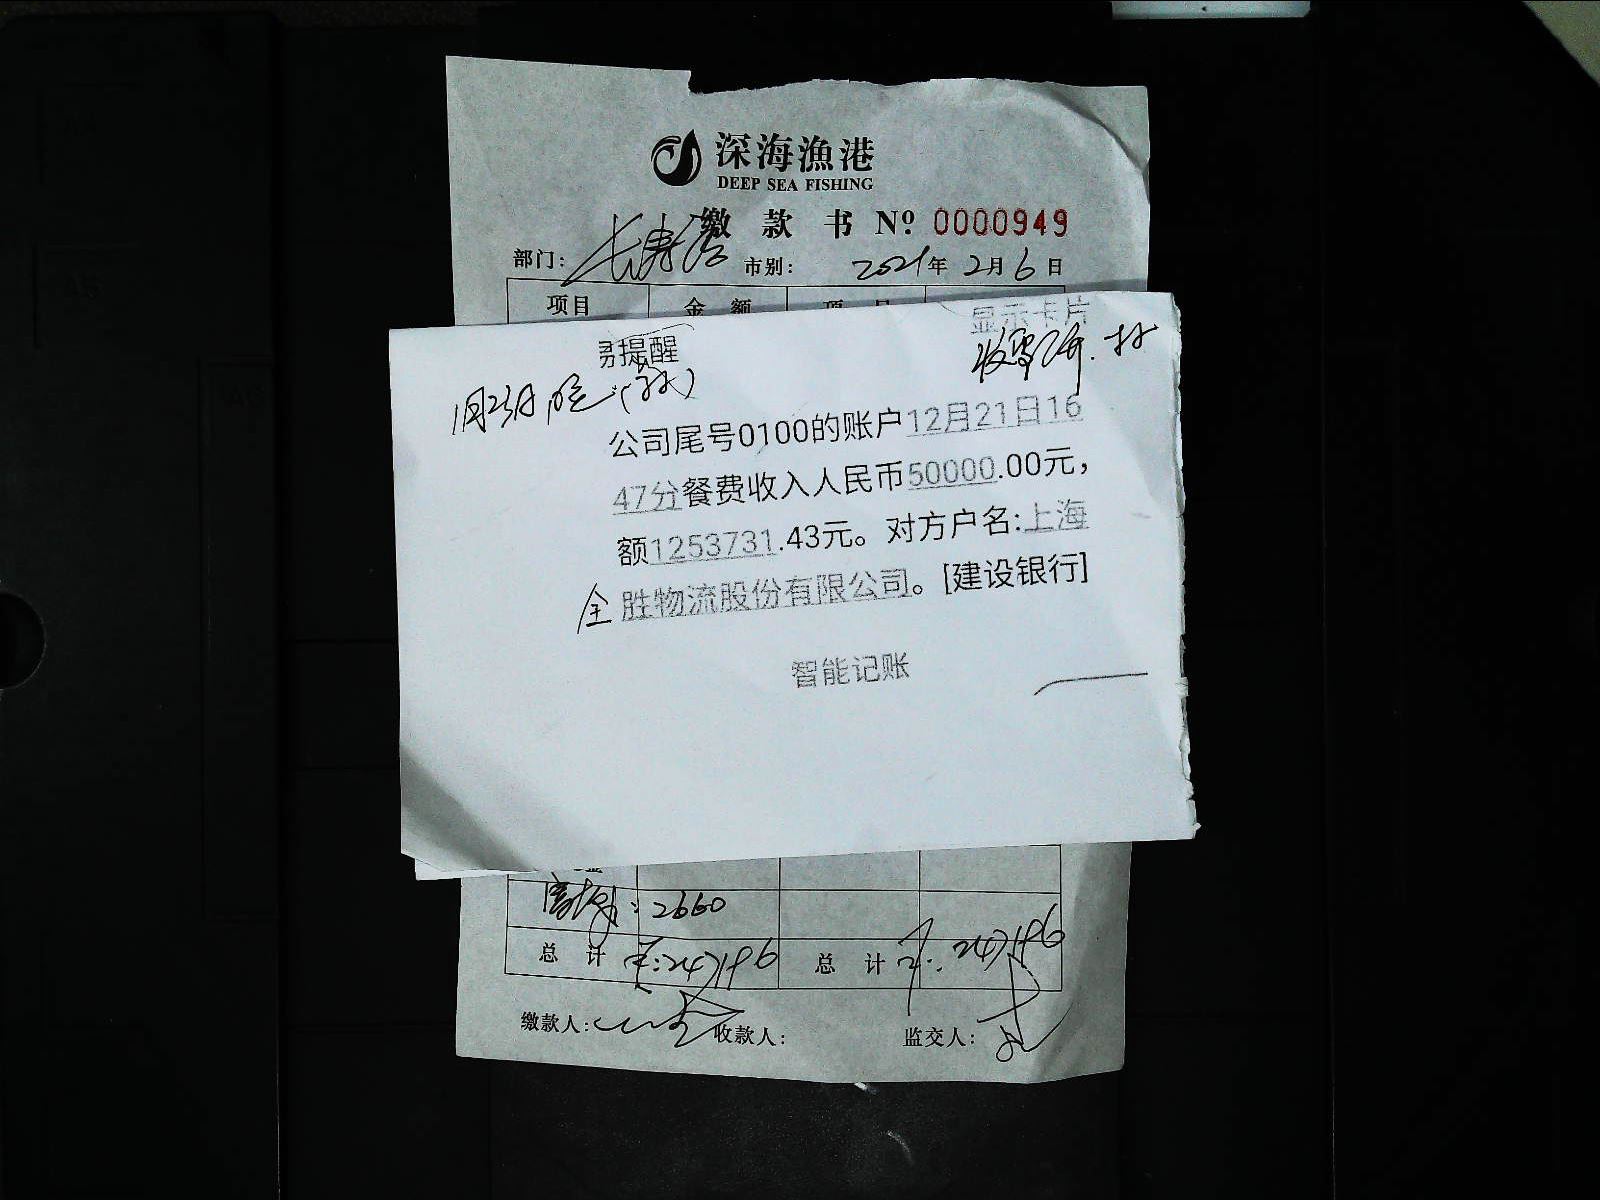 深海渔港
DEEP SEA FISHING
缴款书 Nº 0000949
部门: 长寿路 市别: 2021年2月6日
项目 金额 项目
显示卡片
提醒
1月23日 晚
公司尾号0100的账户12月21日16
47分餐费收入人民币50000.00元,
额1253731.43元。对方户名:上海
全胜物流股份有限公司。[建设银行]
智能记账
: 2660
总计 总计
缴款人: 收款人: 监交人: